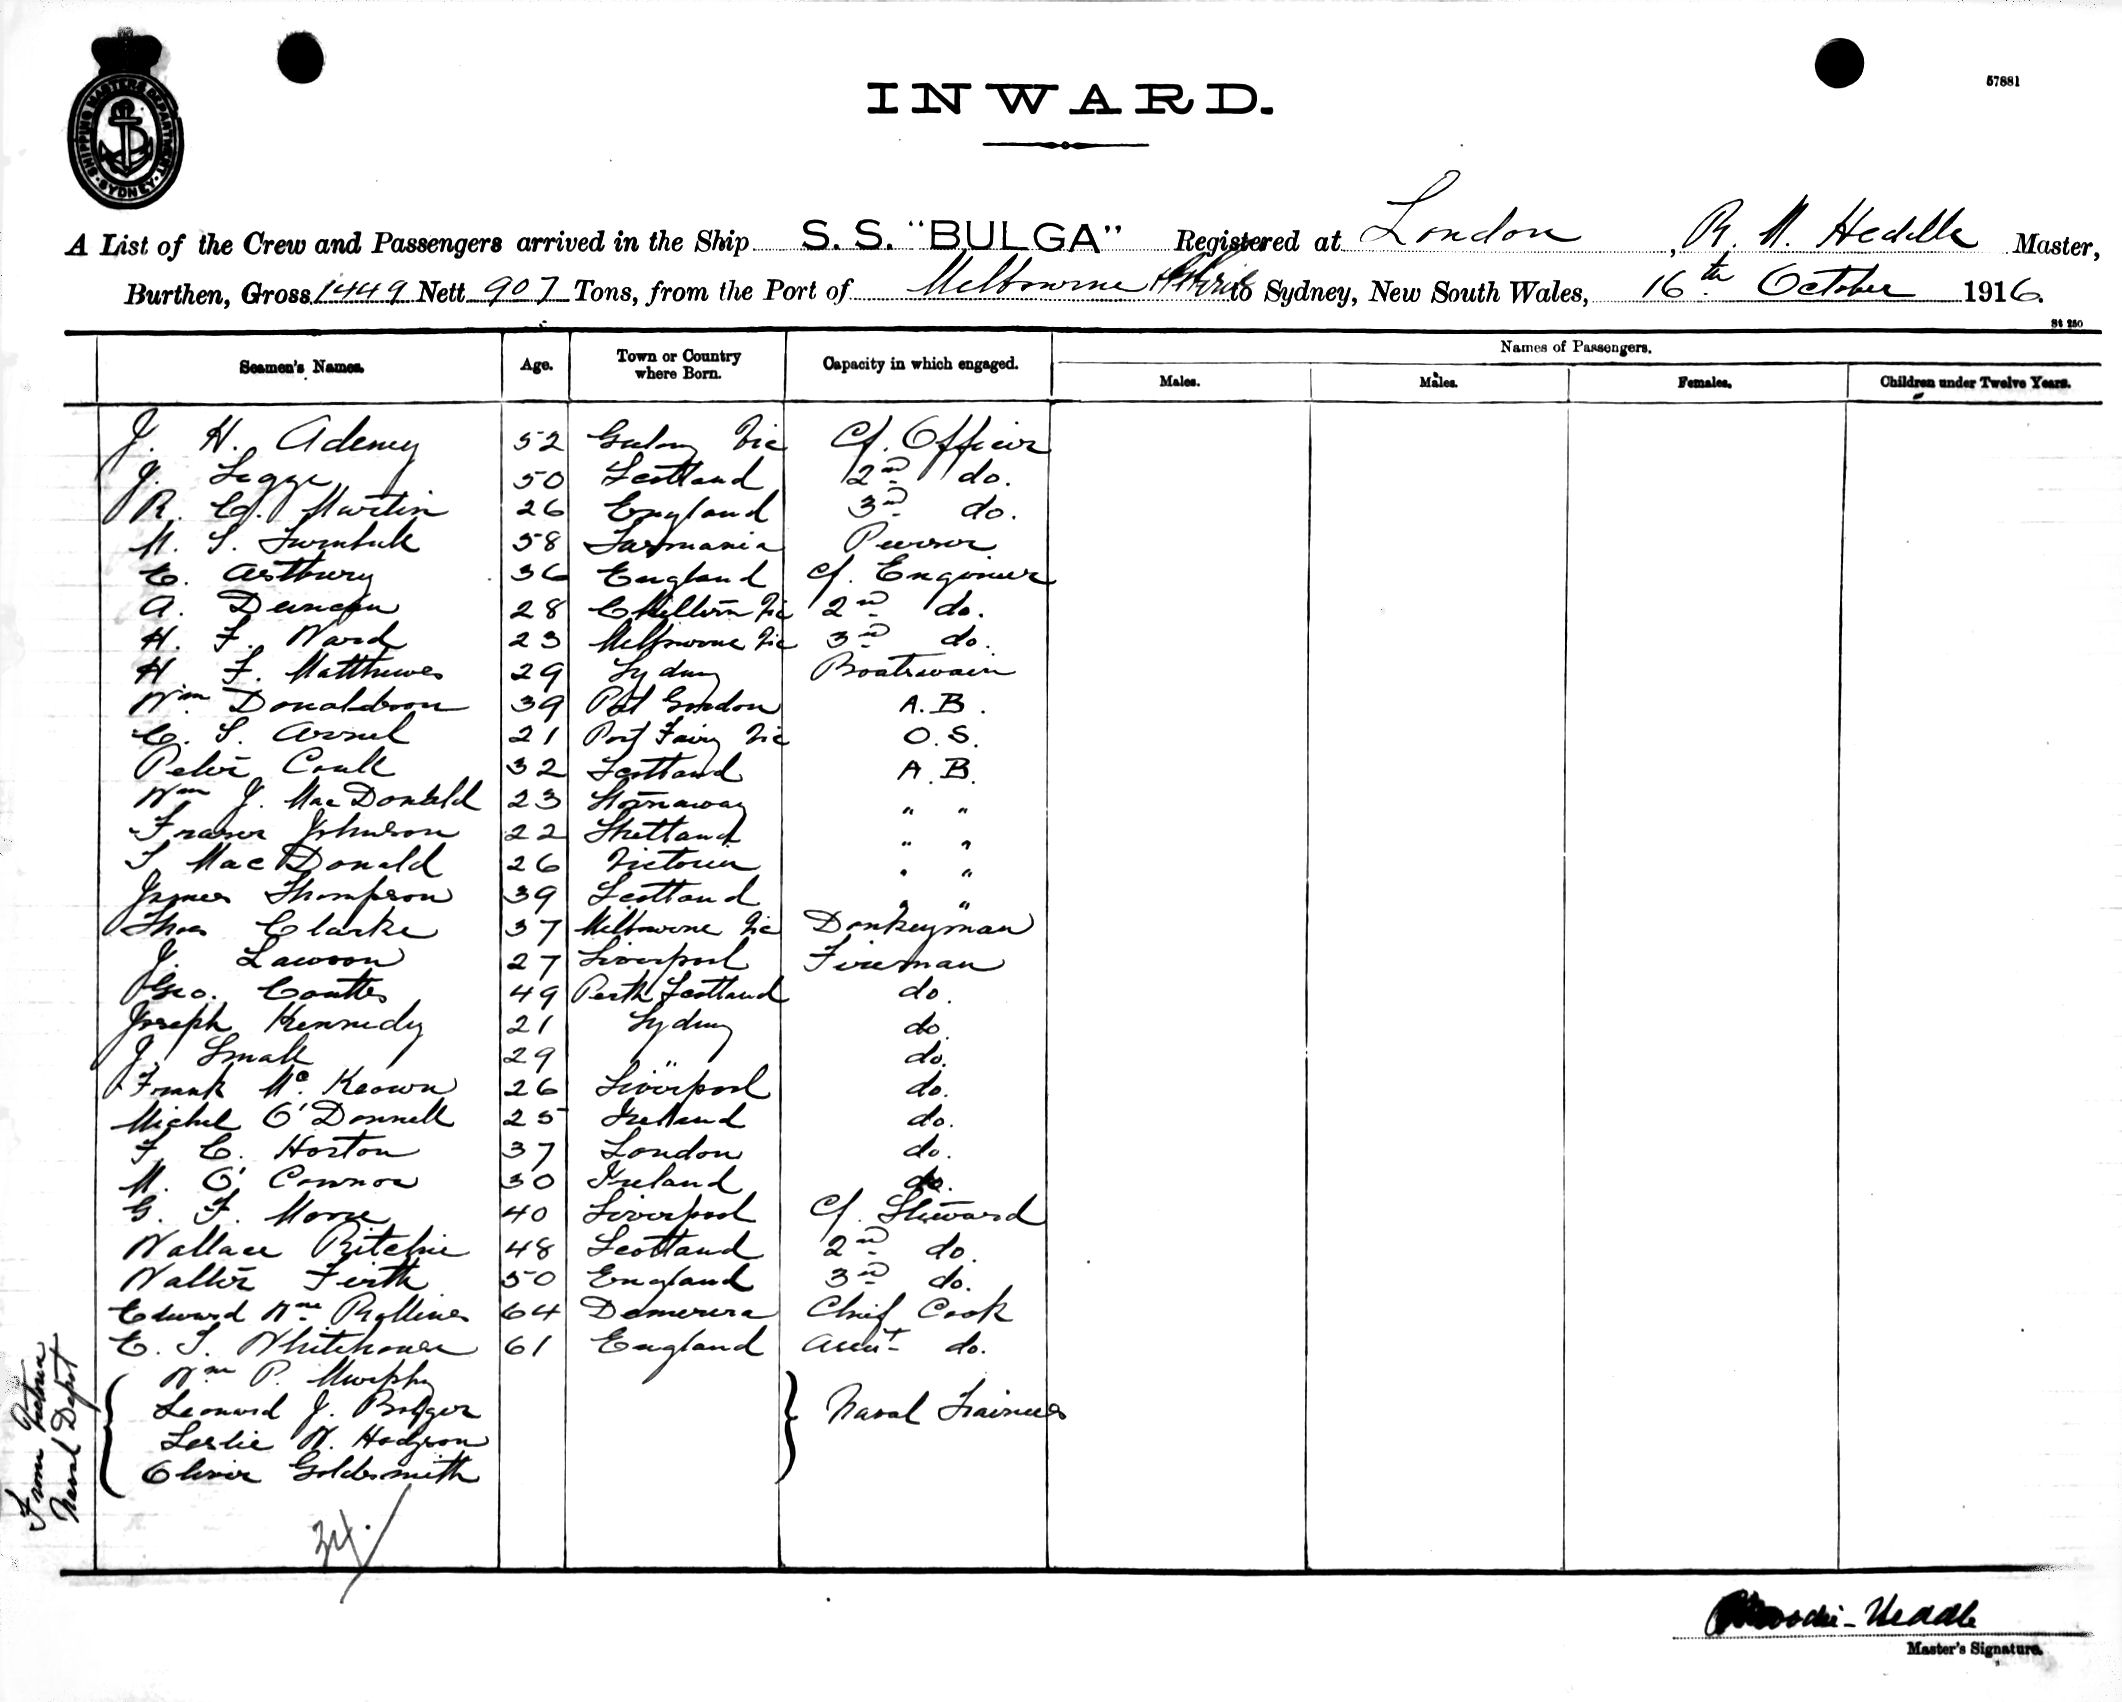 SHIPPING MASTERS DEPARTMENT SYDNEY
57881
INWARD.
A List of the Crew and Passengers arrived in the Ship S. S. "BULGA" Registered at London, R. M. Heddle Master,
Burthen, Gross 1449 Nett 907 Tons, from the Port of Melbourne to Sydney, New South Wales, 16th October 1916.
St 250
Seamen's Names. Age. Town or Country where Born. Capacity in which engaged. Names of Passengers.
Males. Males. Females. Children under Twelve Years.
J. H. Adeney 52 Geelong Vic Cf. Officer
J. Legge 50 Scotland 2nd do.
R. C. Martin 26 England 3rd do.
M. S. Turnbull 58 Tasmania Purser
C. Astbury 36 England Cf. Engineer
A. Duncan 28 Chiltern Vic 2nd do.
H. F. Ward 23 Melbourne Vic 3rd do.
H F. Matthews 29 Sydney Boatswain
Wm Donaldson 39 Port Gordon A.B.
C. S. 21 Port Fairy Vic O.S.
Peter Coull 32 Scotland A.B.
Wm J. MacDonald 23 Stornaway " "
Fraser Johnson 22 Shetland " "
S MacDonald 26 Victoria " "
James Thompson 39 Scotland " "
Thos Clarke 37 Melbourne Vic Donkeyman
J. Lawson 27 Liverpool Fireman
Geo. Coutts 49 Perth Scotland do.
Joseph Kennedy 21 Sydney do.
J. Small 29 " do.
Frank Mc Keown 26 Liverpool do.
Michel O'Donnell 25 Ireland do.
F C. Horton 37 London do.
M. O'Connor 30 Ireland do.
G. F. Moore 40 Liverpool Cf. Steward
Wallace Ritchie 48 Scotland 2nd do.
Walter Firth 50 England 3rd do.
Edward Wm Rollins 64 Demerera Chief Cook
E. S. Whitehouse 61 England Assit do.
Wm P. Murphy
Leonard J. Bolger Naval Trainees
Leslie W. Hodgson
Oliver Goldsmith
From Victoria
Naval Depot
34.
Moodie-Heddle
Master's Signature.